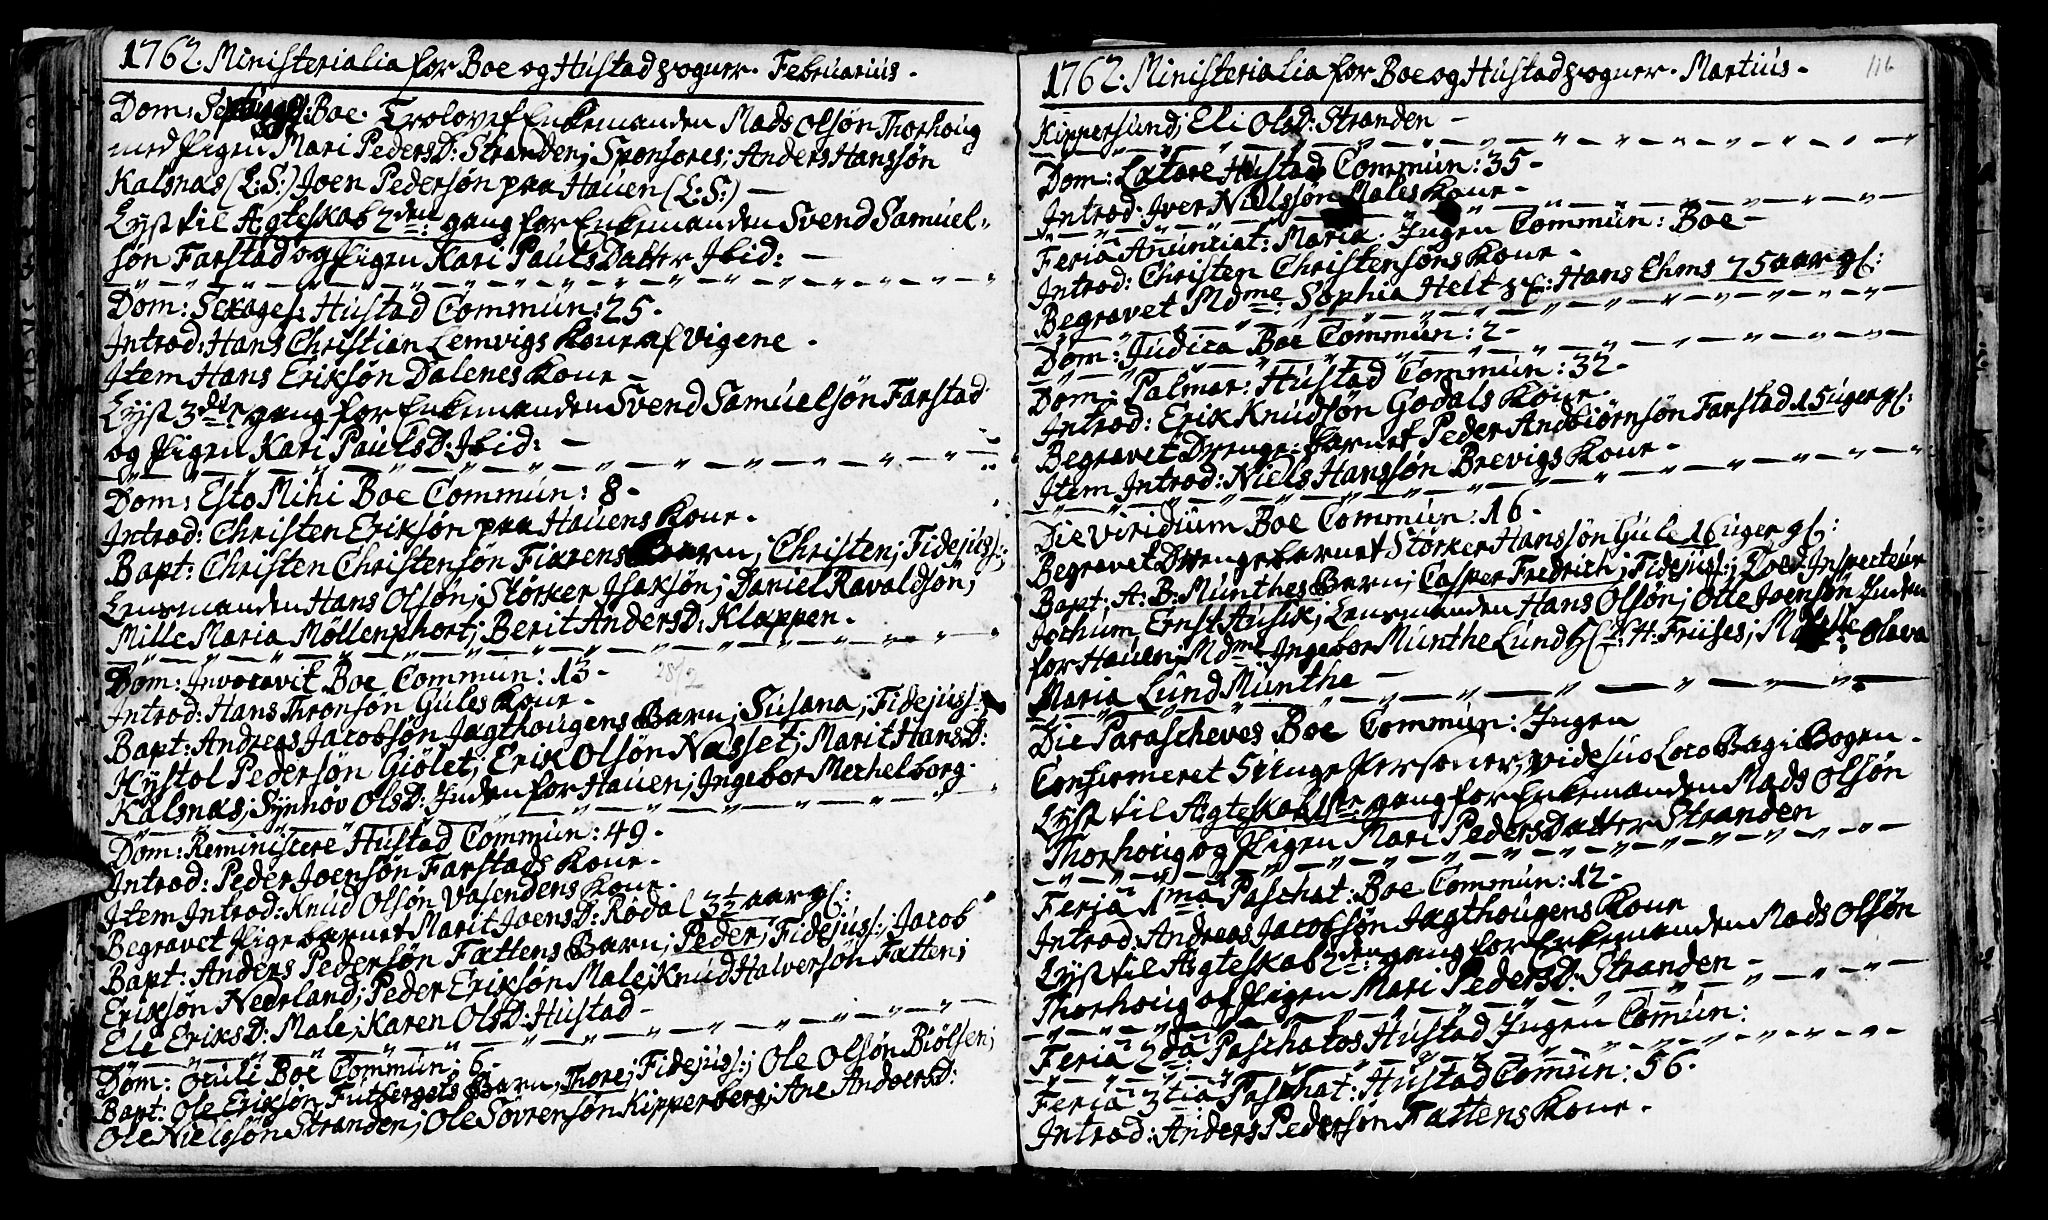 1762. Ministerialia for Boe og Hùstad sogner. Februarius.
Dom: Septuages: Boe. Trolovet Enkemanden Mads Olsøn Thorhoug
med Pigen Mari PedersD: Stranden; Sponsores; Anders Hanssøn
Kalsnæs (L:S:) Joen Pedersøn paa Hauen (L:S:) —
Lyst til Ægteskab 2den gang for Enkemanden Svend Samuel-
søn Farstad og Pigen Kari Pauls Datter Ibid: —
Dom: Sexages: Hustad Commùn: 25.
Introd: Hans Christian Lemvigs Kone af Vigene.
Item Hans Eriksøn Dalenes Kone —
Lyst 3die gang for Enkemanden Svend Samùelsøn Farstad
og Pigen Kari PaulsD: Ibid: —
Dom: Esto Mihi Boe Commùn: 8.
Introd: Christen Eriksøn paa Hauens Kone.
Bapt: Christen Christensøn Fiærens Barn; Christen; Fidejùss:;
Lensmanden Hans Olsøn; Størker Isaksøn; Daniel Ravaldsøn;
Mille Maria Møllenphort; Berit AndersD: Klappen.
Dom: Invocavit Boe Commùn: 13. 28/2
Introd: Hans Thronsøn Gùles Kone.
Bapt: Andreas Jacobsøn Jagthoùgens Barn; Sùsana; Fidejùss:;
Kystol Pedersøn Giølet; Erik Olsøn Næsset; Marit HansD:
Kalsnæs; Synnøv OlsD: Inden for Hauen; Ingebor Mechelborg.
Dom: Reminiscere Hùstad Commùn: 49.
Introd: Peder Joensøn Farstads Kone.
Item Introd: Knùd Olsøn Vasendens Kone.
Begravet Pigebarnet Marit JoensD: Rødal 3½ aar gl:
Bapt: Anders Pedersøn Fættens Barn; Peder; Fidejùss:; Jacob
Eriksøn Nedrland; Peder Eriksøn Male; Knùd Halversøn Fætten;
Eli EriksD: Male; Karen OlsD: Hùstad —
Dom: Oculi Boe Commùn: 6.
Bapt: Ole Eriksøn Futbergets Barn, Thore; Fidejùss:; Ole Olsøn Biølsen;
Ole Nielssøn Stranden; Ole Sovrensøn Kipperberg; Ane AndersD:
1762. Ministerialia for Boe og Hùstad sogner. Martiùs. 116
Kippersùnd; Eli OlsD: Stranden —
Dom: Lætare Hùstad Commùn: 35.
Introd: Iver Nielssøn Males Kone —
Feria Anùnciat: Mariæ. Ingen Commùn: Boe —
Introd: Christen Christensøns Kone.
Begravet Mdme: Sophia Helt sl: Hans Ehms 75 aar gl:
Dom: Jùdica Boe Commùn: 2 —
Dom: Palmar: Hùstad Commùn: 32.
Introd: Erik Knùdsøn Godals Kone.
Begravet Drenge-barnet Peder Andbiørnsøn Farstad 15 ùger gl:
Item Introd: Niels Hanssøn Brevigs Kone —
Die Viridiùm Boe Commùn: 16.
Begravet Drengebarnet Størker Hanssøn Gùle 16 ùger gl:
Bapt: A: B: Mùnthes Barn; Casper Fredrich; Fidejùss:; Toed Inspecteùr
Jochùm Ernst Hùsik; Lensmanden Hans Olsøn; Olle Joensøn Inden
for Hauen; Mdme: Ingebor Mùnthe Lùnd H: Friises; Olava
Maria Lùnd Mùnthe —
Die Parascheves Boe Commùn: Ingen
Confirmeret 5 ùnge Personer, vide sùo Loco Bag i Bogen.
Lyst til Ægteskab 1ste gang for Enkemanden Mads Olsøn
Thorhoùg og Pigen Mari Peders Datter Stranden
Feria 1ma Paschat: Boe Commùn: 12.
Introd: Andreas Jacobsøn Jagthoùgens Kone
Lyst til Ægteskab 2den gang for Enkemanden Mads Olsøn
Thorhoùg og Pigen Mari PedersD: Stranden —
Feria 2da Paschatos Hùstad Ingen Comùn:
Feria 3tia Paschat: Hùstad Comùn: 56.
Introd: Anders Pedersøn Fættens Kone.